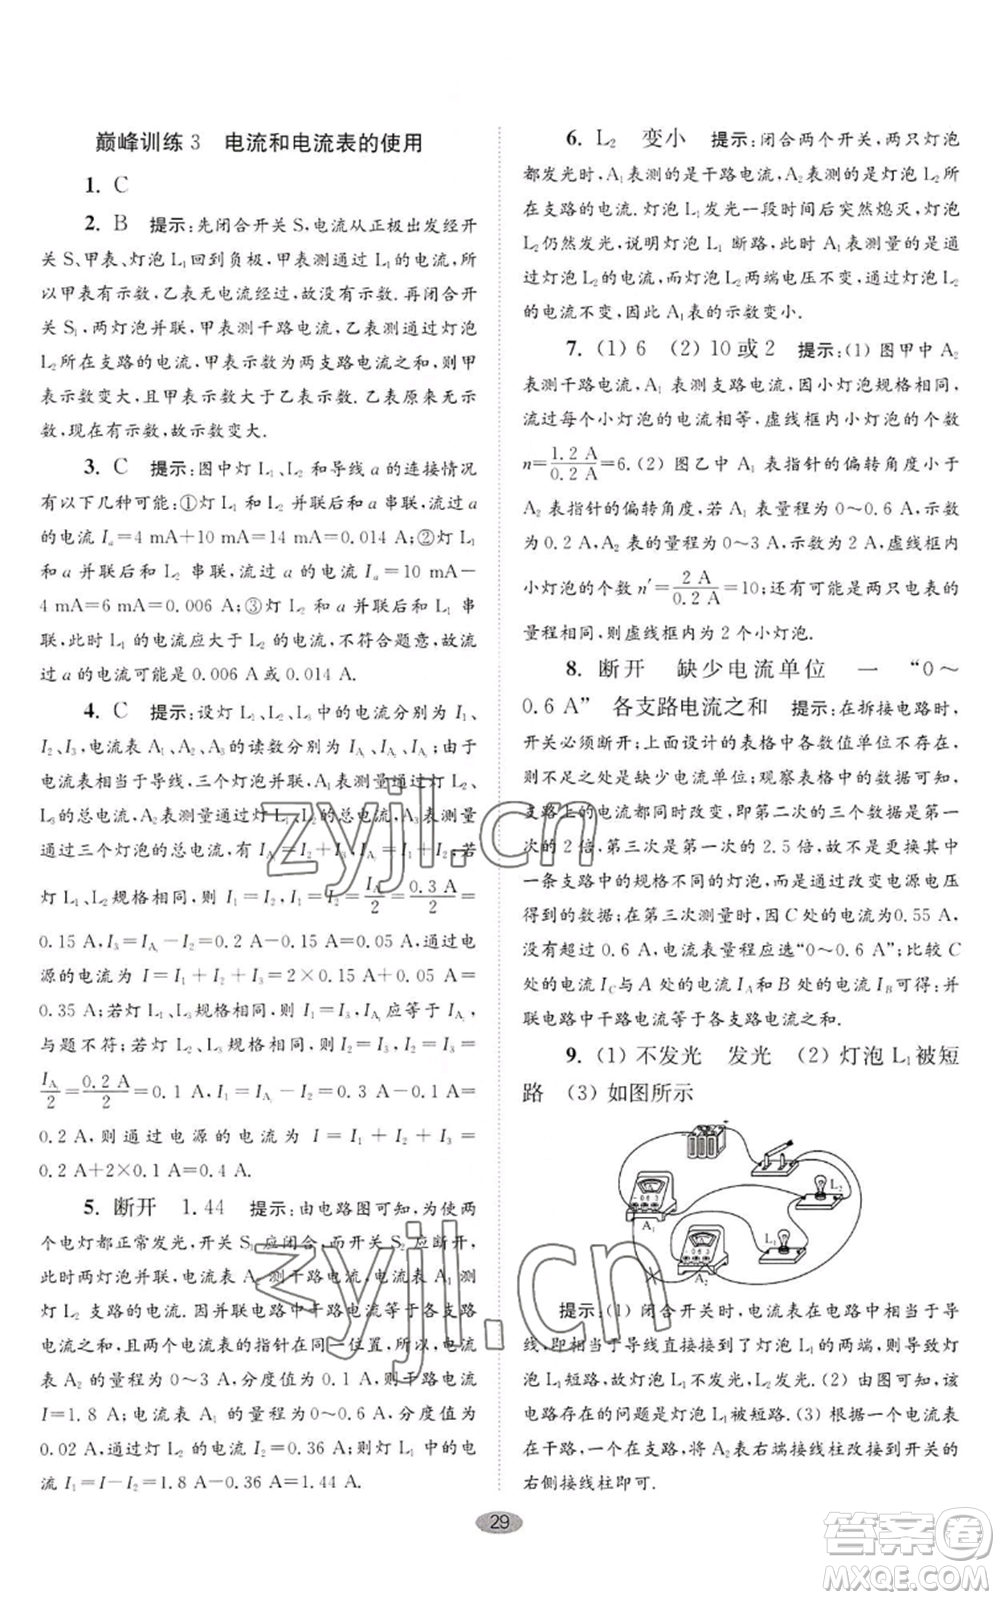 巅峰训练 3　电流和电流表的使用
1. C
2. B　提示:先闭合开关 S,电流从正极出发经开
关 S、甲表、灯泡 L₁ 回到负极,甲表测通过 L₁ 的电流,
所以甲表有示数,乙表无电流经过,没有示数. 再闭合开
关 S₁,两灯泡并联,甲表测干路电流,乙表测通过灯泡
L₂ 所在支路的电流,甲表示数为两支路电流之和,则甲
表示数变大,且甲表示数大于乙表示数. 乙表原来无示
数,现在有示数,故示数变大.
3. C　提示:图中灯 L₁、L₂ 和导线 a 的连接情况
有以下几种可能:①灯 L₁ 和 L₂ 并联后和 a 串联,流过 a
的电流 Iₐ=4 mA+10 mA=14 mA=0.014 A;②灯 L₁
和 a 并联后和 L₂ 串联,流过 a 的电流 Iₐ=10 mA-
4 mA=6 mA=0.006 A;③灯 L₂ 和 a 并联后和 L₁ 串
联,此时 L₁ 的电流应大于 L₂ 的电流,不符合题意,故流
过 a 的电流可能是 0.006 A 或 0.014 A.
4. C　提示:设灯 L₁、L₂、L₃ 中的电流分别为 I₁、
I₂、I₃,电流表 A₁、A₂、A₃ 的读数分别为 I_A₁、I_A₂、I_A₃;由于
电流表相当于导线,三个灯泡并联,A₁表测量通过灯 L₂、
L₃的总电流,A₂表测量通过灯L₁、L₂的总电流,A₃表测量
通过三个灯泡的总电流,有 I_A₁=I₂+I₃,I_A₂=I₁+I₂;若
灯 L₁、L₂规格相同,则 I₁=I₂=I_A₁/2=0.3 A/2=
0.15 A,I₃=I_A₂-I₂=0.2 A-0.15 A=0.05 A,通过电
源的电流为 I=I₁+I₂+I₃=2×0.15 A+0.05 A=
0.35 A;若灯 L₁、L₃规格相同,则 I₁=I₃,I_A₁应等于 I_A₂,
与题不符;若灯 L₂、L₃ 规格相同,则 I₂=I₃=
I_A₂/2=0.2 A/2=0.1 A,I₁=I_A₁-I₂=0.3 A-0.1 A=
0.2 A;则通过电源的电流为 I=I₁+I₂+I₃=
0.2 A+2×0.1 A=0.4 A.
5. 断开　1.44　提示:由电路图可知,为使两
个电灯都正常发光,开关 S₁ 应闭合,而开关 S₂ 应断开,
此时两灯泡并联,电流表 A₂ 测干路电流,电流表 A₁ 测
灯 L₂ 支路的电流. 因并联电路中干路电流等于各支路
电流之和,且两个电流表的指针在同一位置,所以,电流
表 A₂ 的量程为 0~3 A,分度值为 0.1 A,则干路电流
I=1.8 A;电流表 A₁ 的量程为 0~0.6 A,分度值为
0.02 A,则通过灯 L₂ 的电流 I₂=0.36 A;灯 L₁ 中的电
流 I₁=I-I₂=1.8 A-0.36 A=1.44 A.
6. L₂　变小　提示:闭合两个开关,两只灯泡
都发光时,A₁表测的是干路电流,A₂表测的是灯泡 L₂所
在支路的电流. 灯泡 L₁ 发光一段时间后突然熄灭,灯泡
L₂仍然发光,说明灯泡 L₁ 断路,此时 A₁表测量的是通
过灯泡 L₂ 的电流,而灯泡 L₂ 两端电压不变,通过灯泡 L₂
的电流不变,因此 A₁表的示数变小.
7. (1) 6　(2) 10 或 2　提示:(1) 图甲中 A₂
表测干路电流,A₁ 表测支路电流,因小灯泡规格相同,
流过每个小灯泡的电流相等,虚线框内小灯泡的个数
n=1.2 A/0.2 A=6.(2) 图乙中 A₁ 表指针的偏转角度小于
A₂ 表指针的偏转角度,若 A₁表量程为 0~0.6 A,示数
为 0.2 A,A₂表的量程为 0~3 A,示数为 2 A,虚线框内
小灯泡的个数 n′=2 A/0.2 A=10;还有可能是两只电表的
量程相同,则虚线框内为 2 个小灯泡.
8. 断开　缺少电流单位　一　“0~
0.6 A”　各支路电流之和　提示:在拆接电路时,
开关必须断开;上面设计的表格中各数值单位不存在,
则不足之处是缺少电流单位;观察表格中的数据可知,
支路上的电流都同时改变,即第二次的三个数据是第一
次的 2 倍,第三次是第一次的 2.5 倍,故不是更换其中
一条支路的规格不同的灯泡,而是通过改变电源电压
得到的数据;在第三次测量中,因 C处的电流为0.55 A,
没有超过 0.6 A,电流表量程应选“0~0.6 A”;比较 C
处的电流 I_C与 A 处的电流 I_A和 B 处的电流 I_B可得:并
联电路中干路电流等于各支路电流之和.
9. (1) 不发光　发光　(2) 灯泡 L₁被短
路　(3) 如图所示
L₂
A₁
L₁
A₂
提示:(1) 闭合开关时,电流表在电路中相当于导
线,A₁表相当于导线直接接到了灯泡 L₁的两端,灯泡
L₁被短路,故灯泡 L₁不发光,L₂发光.(2) 由图可知,该
电路存在的问题是灯泡 L₁被短路.(3) 根据一个电流表
在干路,一个在支路,将 A₂表右端接线柱改接到开关的
右侧接线柱即可.
29
zyjl.cn
zyjl.cn
答案圈
MXQE.COM